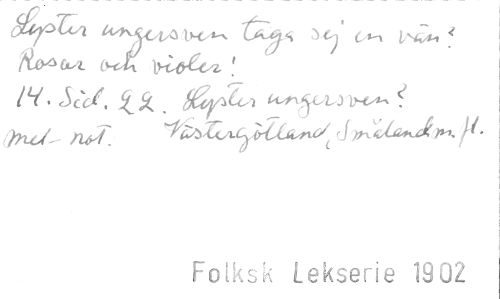 Lyster ungersven taga sej en vän?
Rosor och violer!
14. Sid. 22. Lyster ungersven?
mel- not. Västergötland, Småland m. fl.
Folksk Lekserie 1902